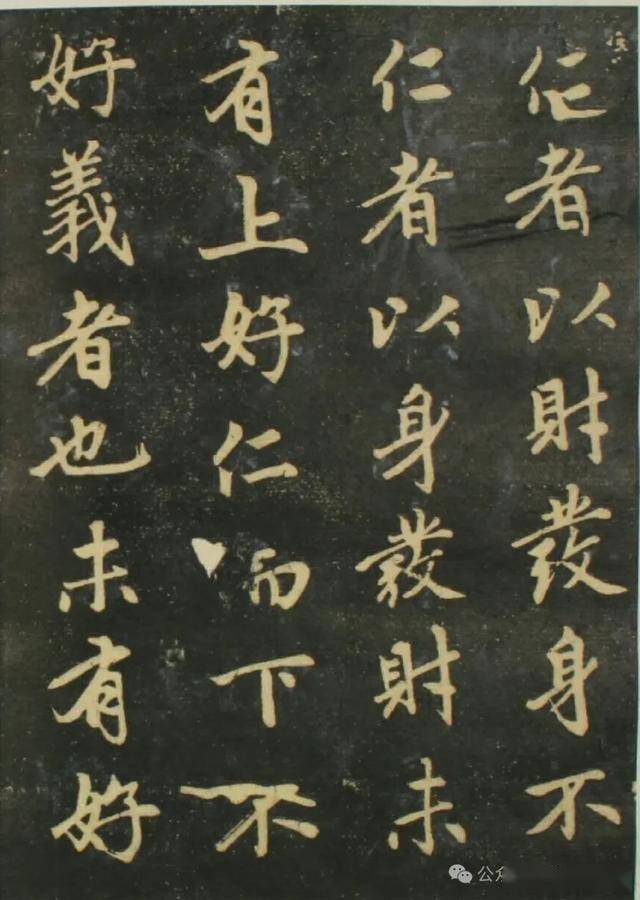 仁者以財發身不
仁者以身發財未
有上好仁而下不
好義者也未有好
公众